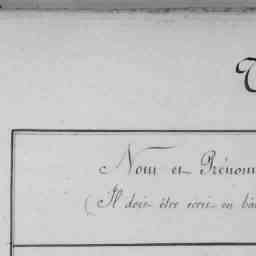 Nom et Prénom
(Il doit être écrit en